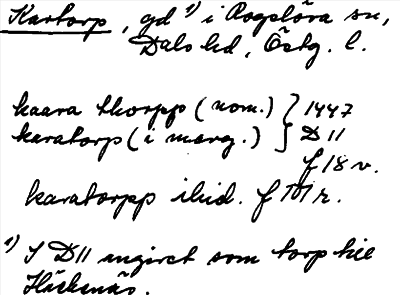 Kartorp, gd ¹) i Rogslösa sn,
Dals hd, Östg. l.
kaara thorpp (nom.) } 1447
karatorp (i marg.) } D 11
f 18 v.
karatorpp ibid. f 101 r.
¹) I D11 angivet som torp till
Häckenäs.